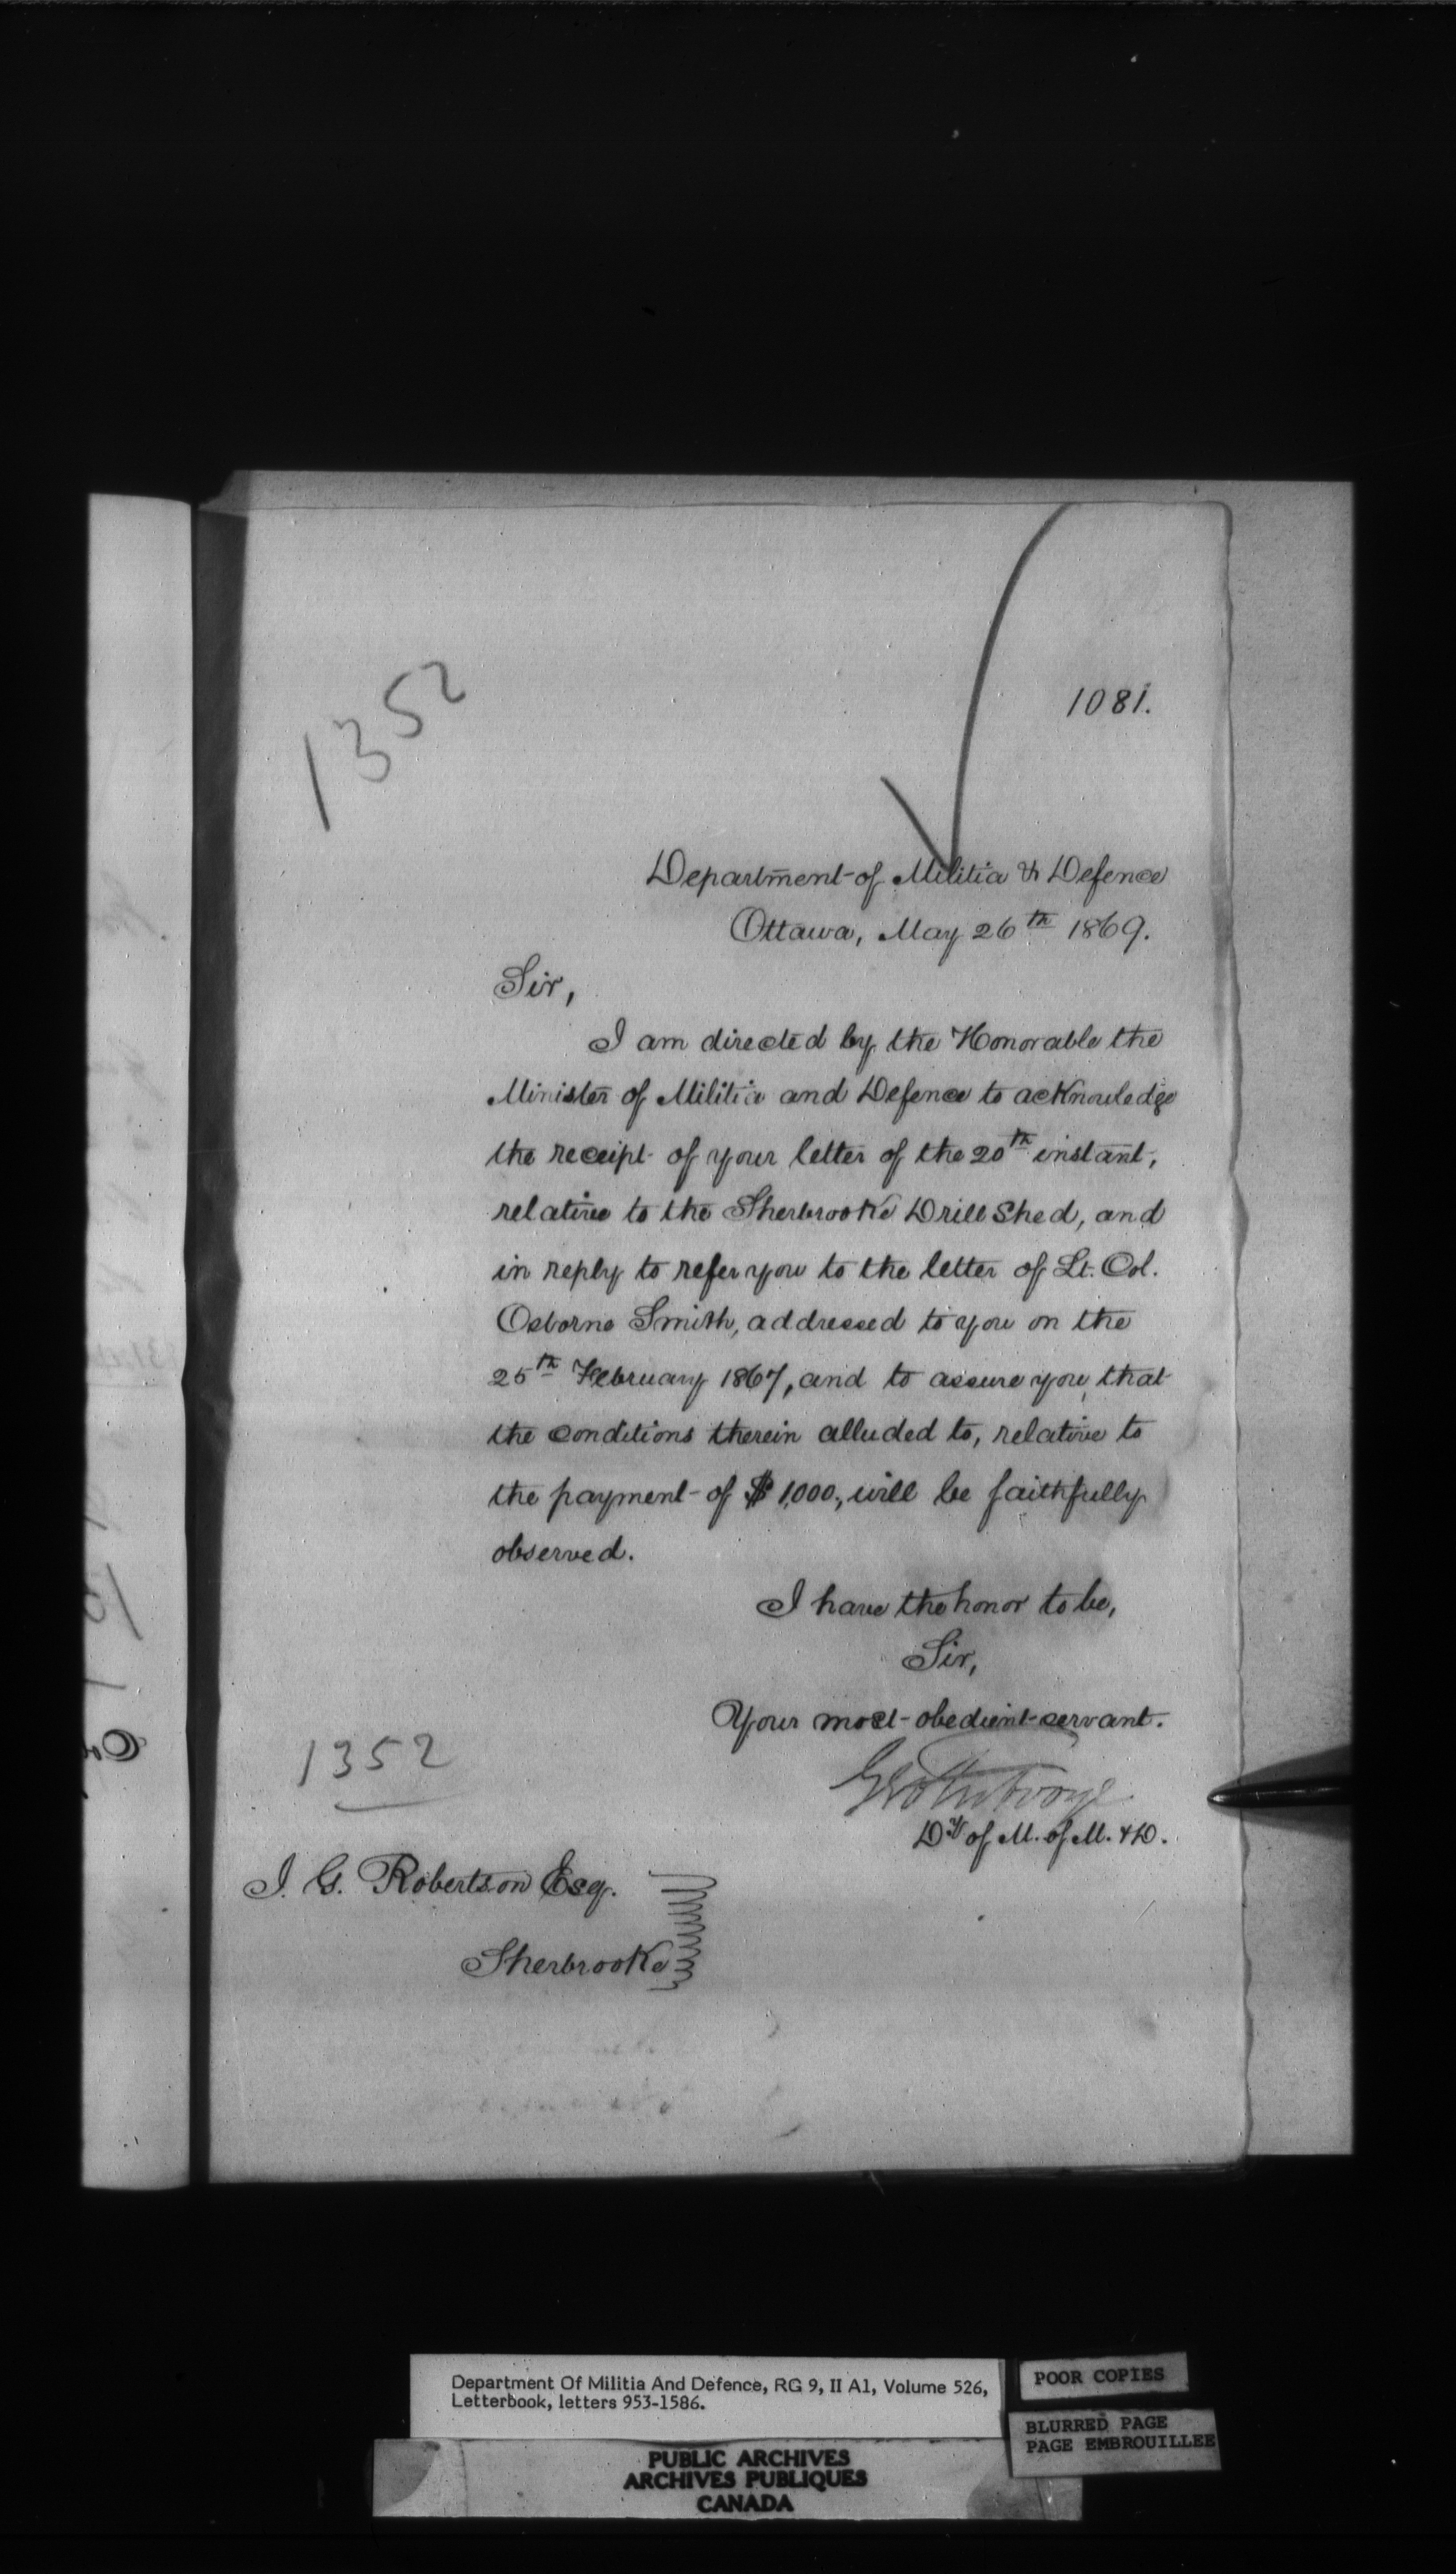 1352
1081.
Department of Militia & Defence
Ottawa, May 26th 1869.
Sir,
I am directed by the Honorable the
Minister of Militia and Defence to acknowledge
the receipt of your letter of the 20th instant,
relative to the Sherbrooke Drill Shed, and
in reply to refer you to the letter of Lt. Col.
Osborne Smith, addressed to you on the
25th February 1867, and to assure you that
the conditions therein alluded to, relative to
the payment of $1,000, will be faithfully
observed.
I have the honor to be,
Sir,
Your most obedient servant.
Dy of M. of M. & D.
1352
J. G. Robertson Esq.
Sherbrooke
Department Of Militia And Defence, RG 9, II A1, Volume 526,
Letterbook, letters 953-1586.
POOR COPIES
BLURRED PAGE
PAGE EMBROUILLEE
PUBLIC ARCHIVES
ARCHIVES PUBLIQUES
CANADA